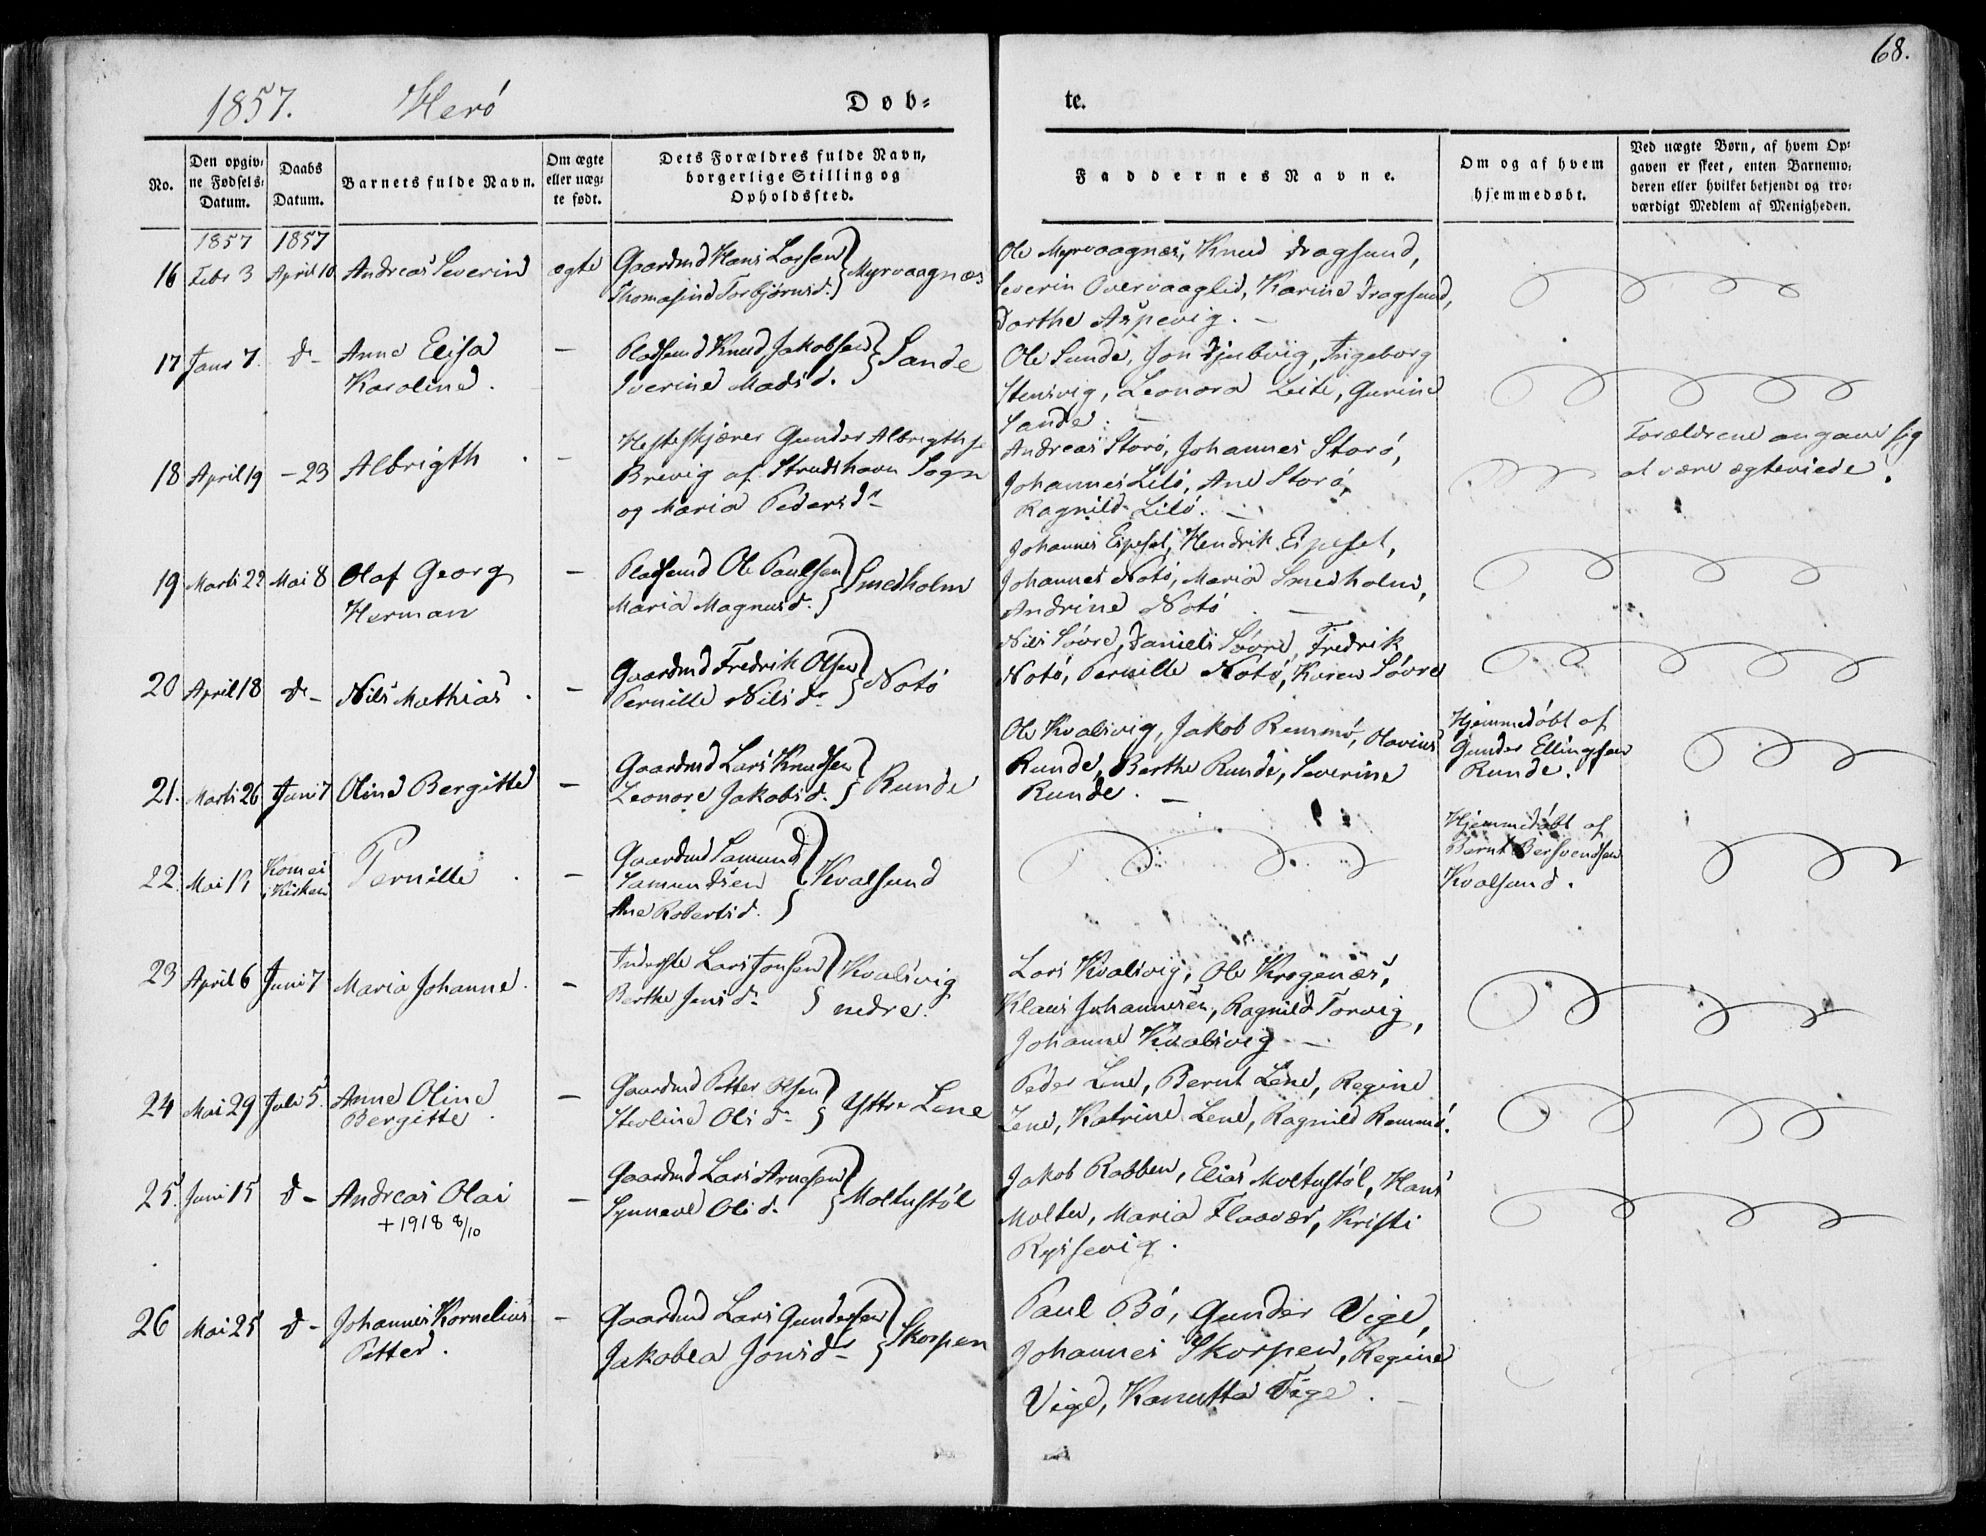 68.
1857. Herö Døb= te.
No.
Den opgiv=
ne Fødsels=
Datum.
Daabs
Datum.
Barnets fulde Navn.
Om ægte
eller uæg=
te født.
Dets Forældres fulde Navn,
borgerlige Stilling og
Opholdssted.
Faddernes Navne.
Om og af hvem
hjemmedøbt.
Ved uægte Børn, af hvem Op=
gaven er skeet, enten Barnemo=
deren eller hvilket bekjendt og tro=
værdigt Medlem af Menigheden.
1857 1857
16 Febr 3 April 10 Andreas Severin ægte
Gaardmd Hans Larsen
Thomasine Torbjørnsd. } Myrvaagnæs
Ole Myrvaagnæs, Knud Dragsund,
Severin Overvaaglid, Karine Dragsund,
Dorthe Aspevig. —
17 Janr 7. do Anne Elisa
Karoline. —
Pladsmd Knud Jakobsen
Iverine Madsd. } Sande
Ole Sunde, Jon Djubvig, Ingeborg
Stensvig, Leonora Leite, Gurine
Sande. —
18 April 19 – 23 Albrigth . —
Hesteskjærer Gunder Albrigths.
Brevig af Strudshavn Sogn
og Maria Pedersdr
Andreas Storö, Johannes Storö,
Johannes Lilö, Ane Storö,
Ragnild Lilö. —
Forældrene angav sig
at være ægteviede.
19 Marti 22 Mai 8 Olaf Georg
Herman —
Pladsmd Ole Paulsen
Maria Magnusd. } Smedholm
Johannes Espeset, Hendrik Espeset,
Johannes Notö, Maria Smedholm,
Andrine Notö. —
20 April 18 do Nils Mathias . —
Gaardmd Fredrik Olsen
Pernille Nilsdr } Notö
Nils Sövre, Daniels Sövre, Fredrik
Notö, Pernille Notö, Karen Sövre
21. Marti 26 Juni 7 Oline Bergitte —
Gaardmd Lars Knudsen
Leonore Jakobsd. } Runde
Ole Kvalsvig, Jakob Remmö, Olovius
Runde, Berthe Runde, Severine
Runde. —
Hjemmedöbt af
Gunder Ellingsen
Runde.
22. Mai 13 Kom ei
i Kirken Pernille . —
Gaardmd Samund
Samundsen
Ane Robertsd. } Kvalsund
Hjemmedöbt af
Bernt Bersvendsen
Kvalsund.
23 April 6 Juni 7 Maria Johanne. —
Inderste Lars Jonsen
Berthe Jensdr } Kvalsvig
nedre.
Lars Kvalsvig, Ole Krogenæs,
Klaus Johannesen, Ragnild Torvig,
Johanne Kvalsvig —
24 Mai 29 Juli 5. Anne Oline
Bergitte . —
Gaardmd Petter Olsen
Olisdr } Yttre Lene
Peder Lene, Bernt Lene, Regine
Lene, Katrine Lene, Ragnild Remmö.
25. Juni 15 do Andreas Olai
+ 1918 8/10 —
Gaardmd Lars Arnesen
Synneve Olsd. } Moltustöl
Jakob Rabben, Elias Moltustöl, Hans
Moltu, Maria Flaavær, Kristi
Rysevig.
26 Mai 25 do Johannes Kornelius
Petter. —
Gaardmd Lars Gundersen
Jakobea Jonsdr } Skorpen
Paul Bö, Gunder Vige,
Johannes Skorpen, Regine
Vige, Kanutta Vige. —